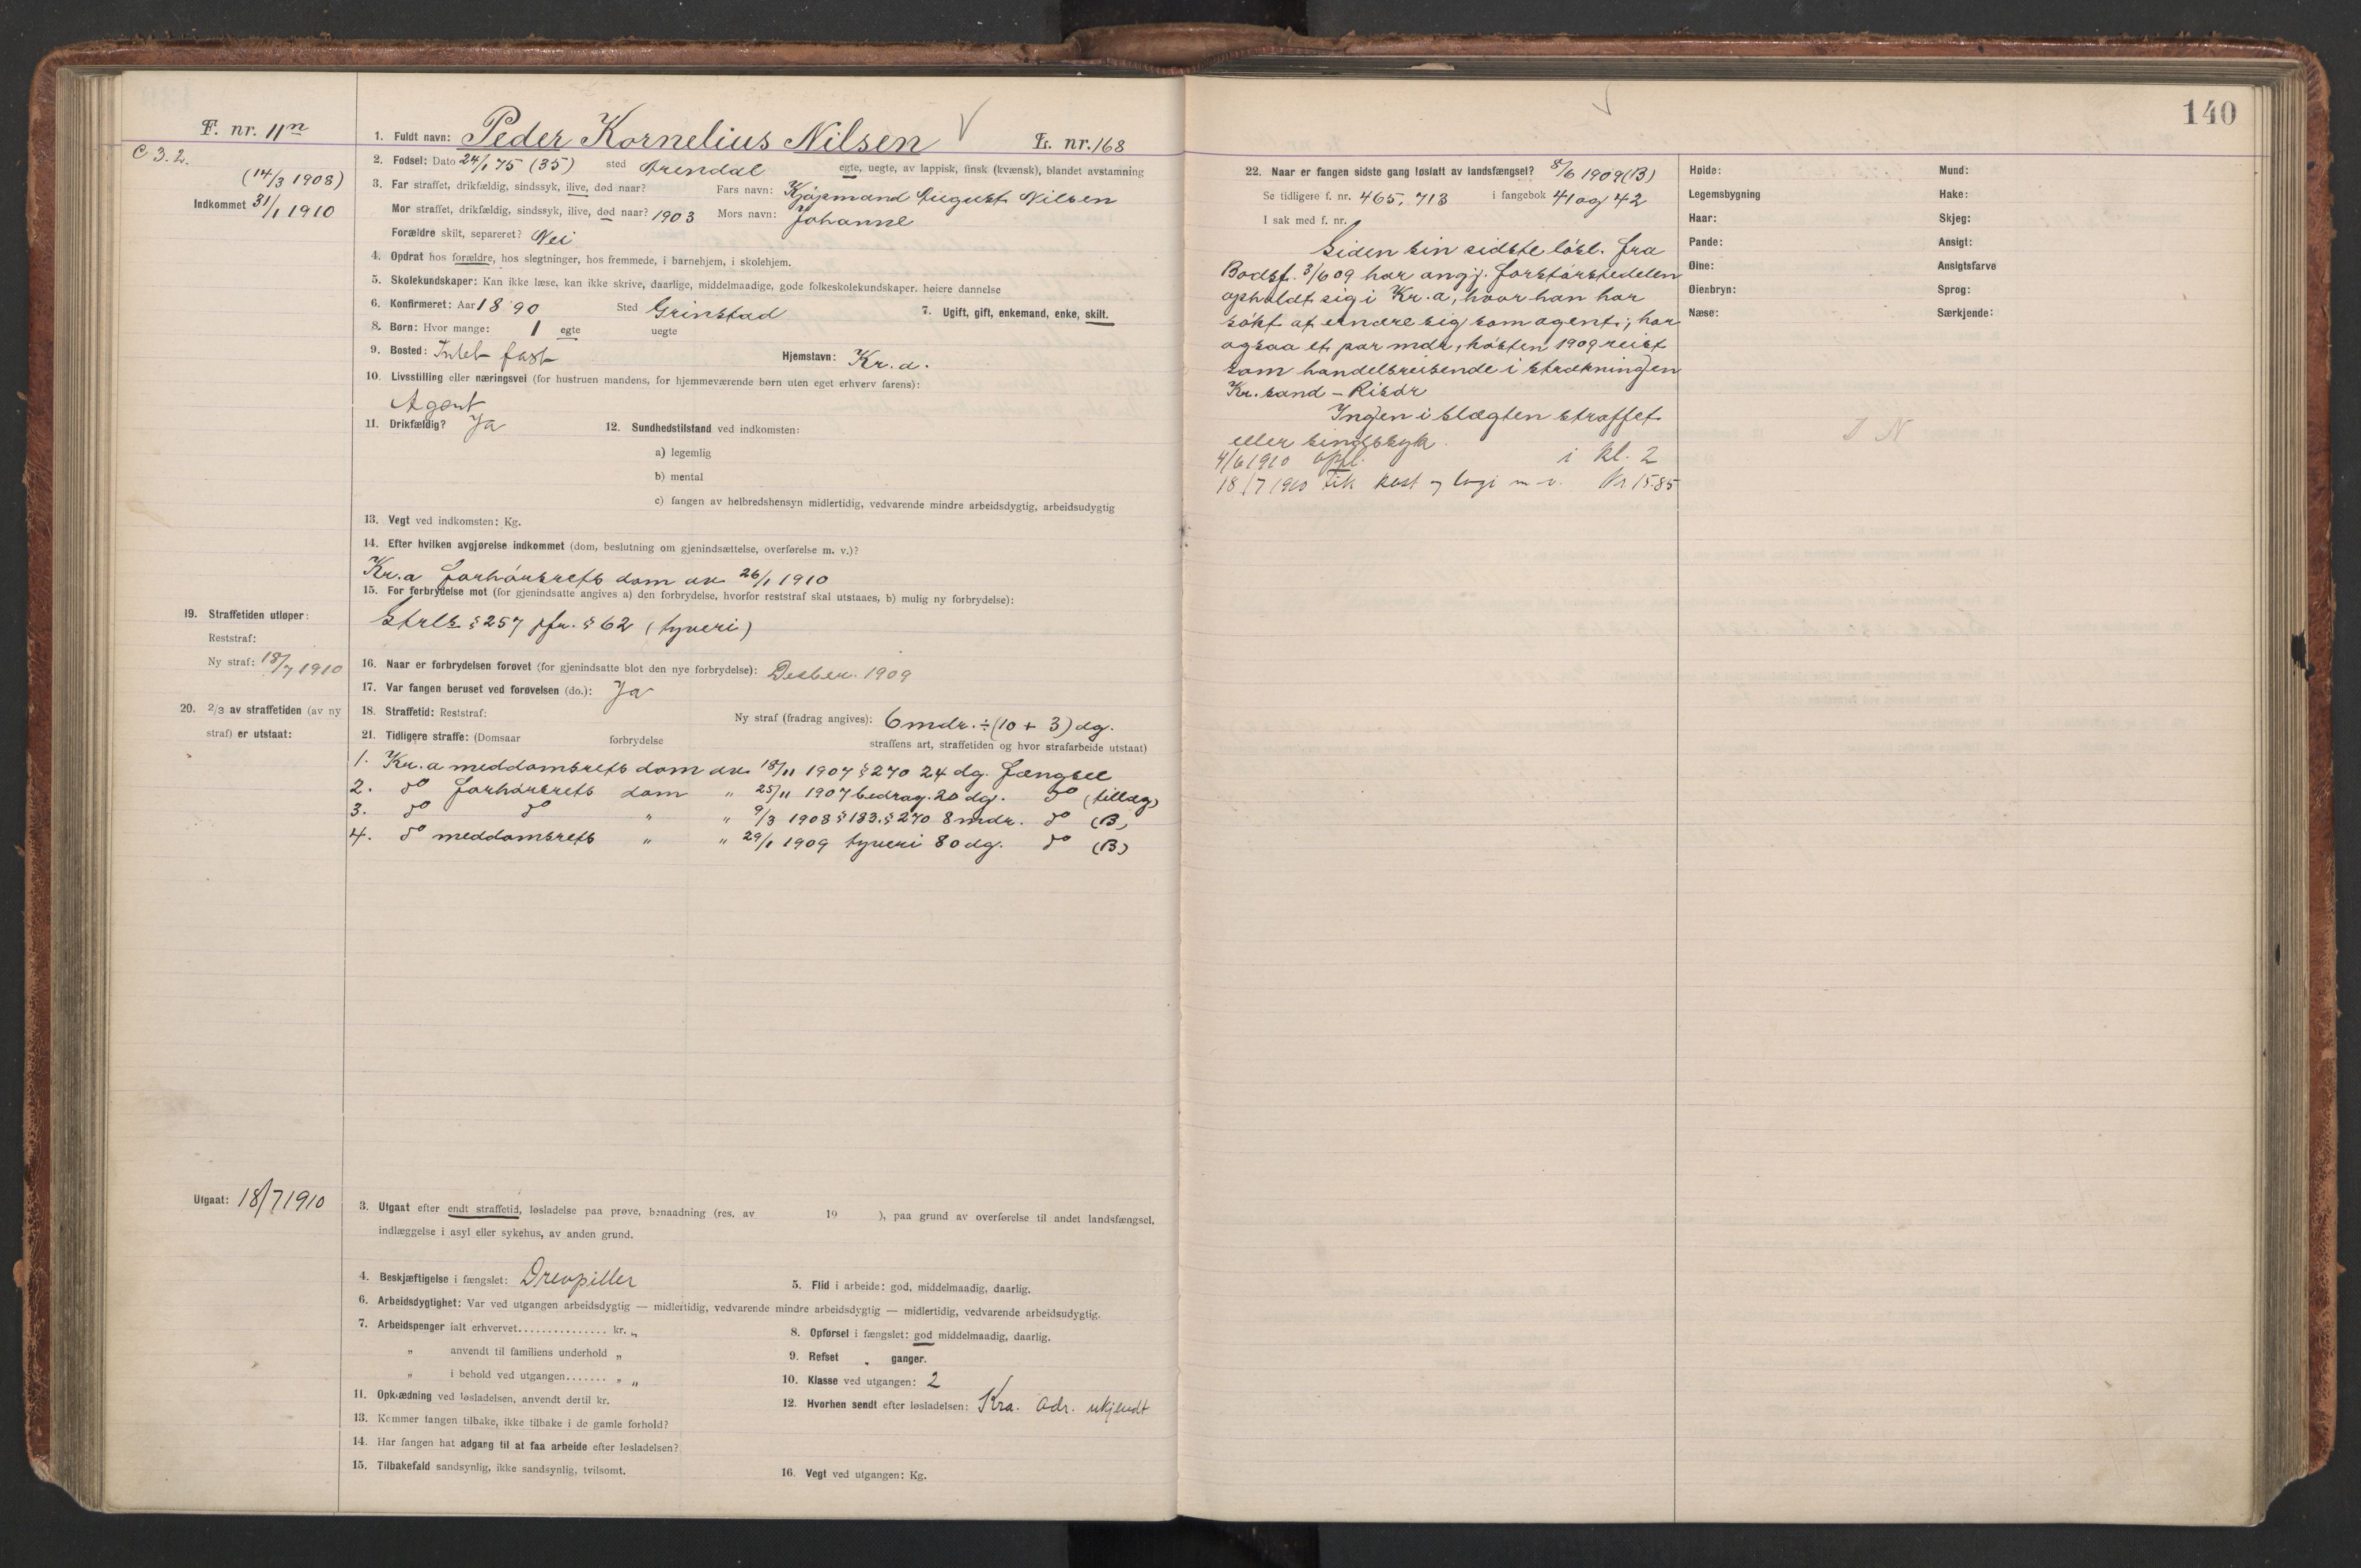 F. nr. 11n
C 3. 2.
(14/3 1908)
Indkommet 31/1 1910
1. Fuldt navn: Peder Kornelius Nilsen
L. nr. 168
2. Fødsel: Dato 24/1 75 (35) sted Arendal egte, uegte, av lappisk, finsk (kvænsk), blandet avstamning
3. Far straffet, drikfældig, sindssyk, ilive, død naar? Fars navn: Kjøpmand August Nilsen
Mor straffet, drikfældig, sindssyk, ilive, død naar? 1903 Mors navn: Johanne
Forældre skilt, separeret? Nei
4. Opdrat hos forældre, hos slegtninger, hos fremmede, i barnehjem, i skolehjem.
5. Skolekundskaper: Kan ikke læse, kan ikke skrive, daarlige, middelmaadige, gode folkeskolekundskaper. høiere dannelse
6. Konfirmeret: Aar 1890 Sted Grimstad 7. Ugift, gift, enkemand, enke, skilt.
8. Børn: Hvor mange: 1 egte uegte
9. Bosted: Intet fast Hjemstavn: Kr.a.
10. Livsstilling eller næringsvei (for hustruen mandens, for hjemmeværende børn uten eget erhverv farens):
Agent
11. Drikfældig? Ja 12. Sundhedstilstand ved indkomsten:
a) legemlig
b) mental
c) fangen av helbredshensyn midlertidig, vedvarende mindre arbeidsdygtig, arbeidsudygtig
13. Vegt ved indkomsten: Kg.
14. Efter hvilken avgjørelse indkommet (dom, beslutning om gjenindsættelse, overførelse m. v.)?
Kr.a forhørsrets dom av 26/1 1910
15. For forbrydelse mot (for gjenindsatte angives a) den forbrydelse, hvorfor reststraf skal utstaaes, b) mulig ny forbrydelse):
Strls § 257 jfr. § 62 (tyveri)
19. Straffetiden utløper:
Reststraf:
Ny straf: 18/7 1910
16. Naar er forbrydelsen forøvet (for gjenindsatte blot den nye forbrydelse): Desber. 1909
17. Var fangen beruset ved forøvelsen (do.): Ja
20. 2/3 av straffetiden (av ny
straf) er utstaat:
18. Straffetid: Reststraf: Ny straf (fradrag angives): 6 mdr. ÷ (10 + 3) dg.
21. Tidligere straffe: (Domsaar forbrydelse straffens art, straffetiden og hvor strafarbeide utstaat)
1. Kr.a meddomsrets dom av 18/11 1907 § 270 24 dg. Fængsel
2. do forhørsrets dom " 25/11 1907 bedrag. 20 dg. do (tillæg)
3. do do " " 9/3 1908 § 183. § 270 8 mdr. do (B)
4. do meddomsrets " " 29/1 1909 tyveri 80 dg. do (B)
Utgaat: 18/7 1910
3. Utgaat efter endt straffetid, løsladelse paa prøve, benaadning (res. av 19 ), paa grund av overførelse til andet landsfængsel,
indlæggelse i asyl eller sykehus, av anden grund.
4. Beskjæftigelse i fængslet: Drevpiller 5. Flid i arbeide: god, middelmaadig, daarlig.
6. Arbeidsdygtighet: Var ved utgangen arbeidsdygtig — midlertidig, vedvarende mindre arbeidsdygtig — midlertidig, vedvarende arbeidsudygtig.
7. Arbeidspenger ialt erhvervet............... kr. „ 8. Opførsel i fængslet: god middelmaadig, daarlig.
„ anvendt til familiens underhold „ 9. Refset „ ganger.
„ i behold ved utgangen....... „ „ 10. Klasse ved utgangen: 2
11. Opklædning ved løsladelsen, anvendt dertil kr. 12. Hvorhen sendt efter løsladelsen: Kra. adr. ukjendt
13. Kommer fangen tilbake, ikke tilbake i de gamle forhold?
14. Har fangen hat adgang til at faa arbeide efter løsladelsen?
15. Tilbakefald sandsynlig, ikke sandsynlig, tvilsomt. 16. Vegt ved utgangen: Kg.
140
22. Naar er fangen sidste gang løslatt av landsfængsel? 8/6 1909 (B)
Se tidligere f. nr. 465, 713 i fangebok 41 og 42
I sak med f. nr.
Siden sin sidste løsl. fra
Bodsf. 3/6 09 har angj. forstørstedelen
opholdt sig i Kr.a, hvor han har
søkt at ernære sig som agent; har
ogsaa et par mdr, høsten 1909 reist
som handelsreisende i strækningen
Kr.sand – Risør
Ingen i slægten straffet
eller sindssyk.
4/6 1910 opfl. i kl. 2
18/7 1910 fik kost og logi m. v. Kr 15.85
Høide: Mund:
Legemsbygning Hake:
Haar: Skjeg:
Pande: Ansigt:
Øine: Ansigtsfarve
Øienbryn: Sprog:
Næse: Særkjende: